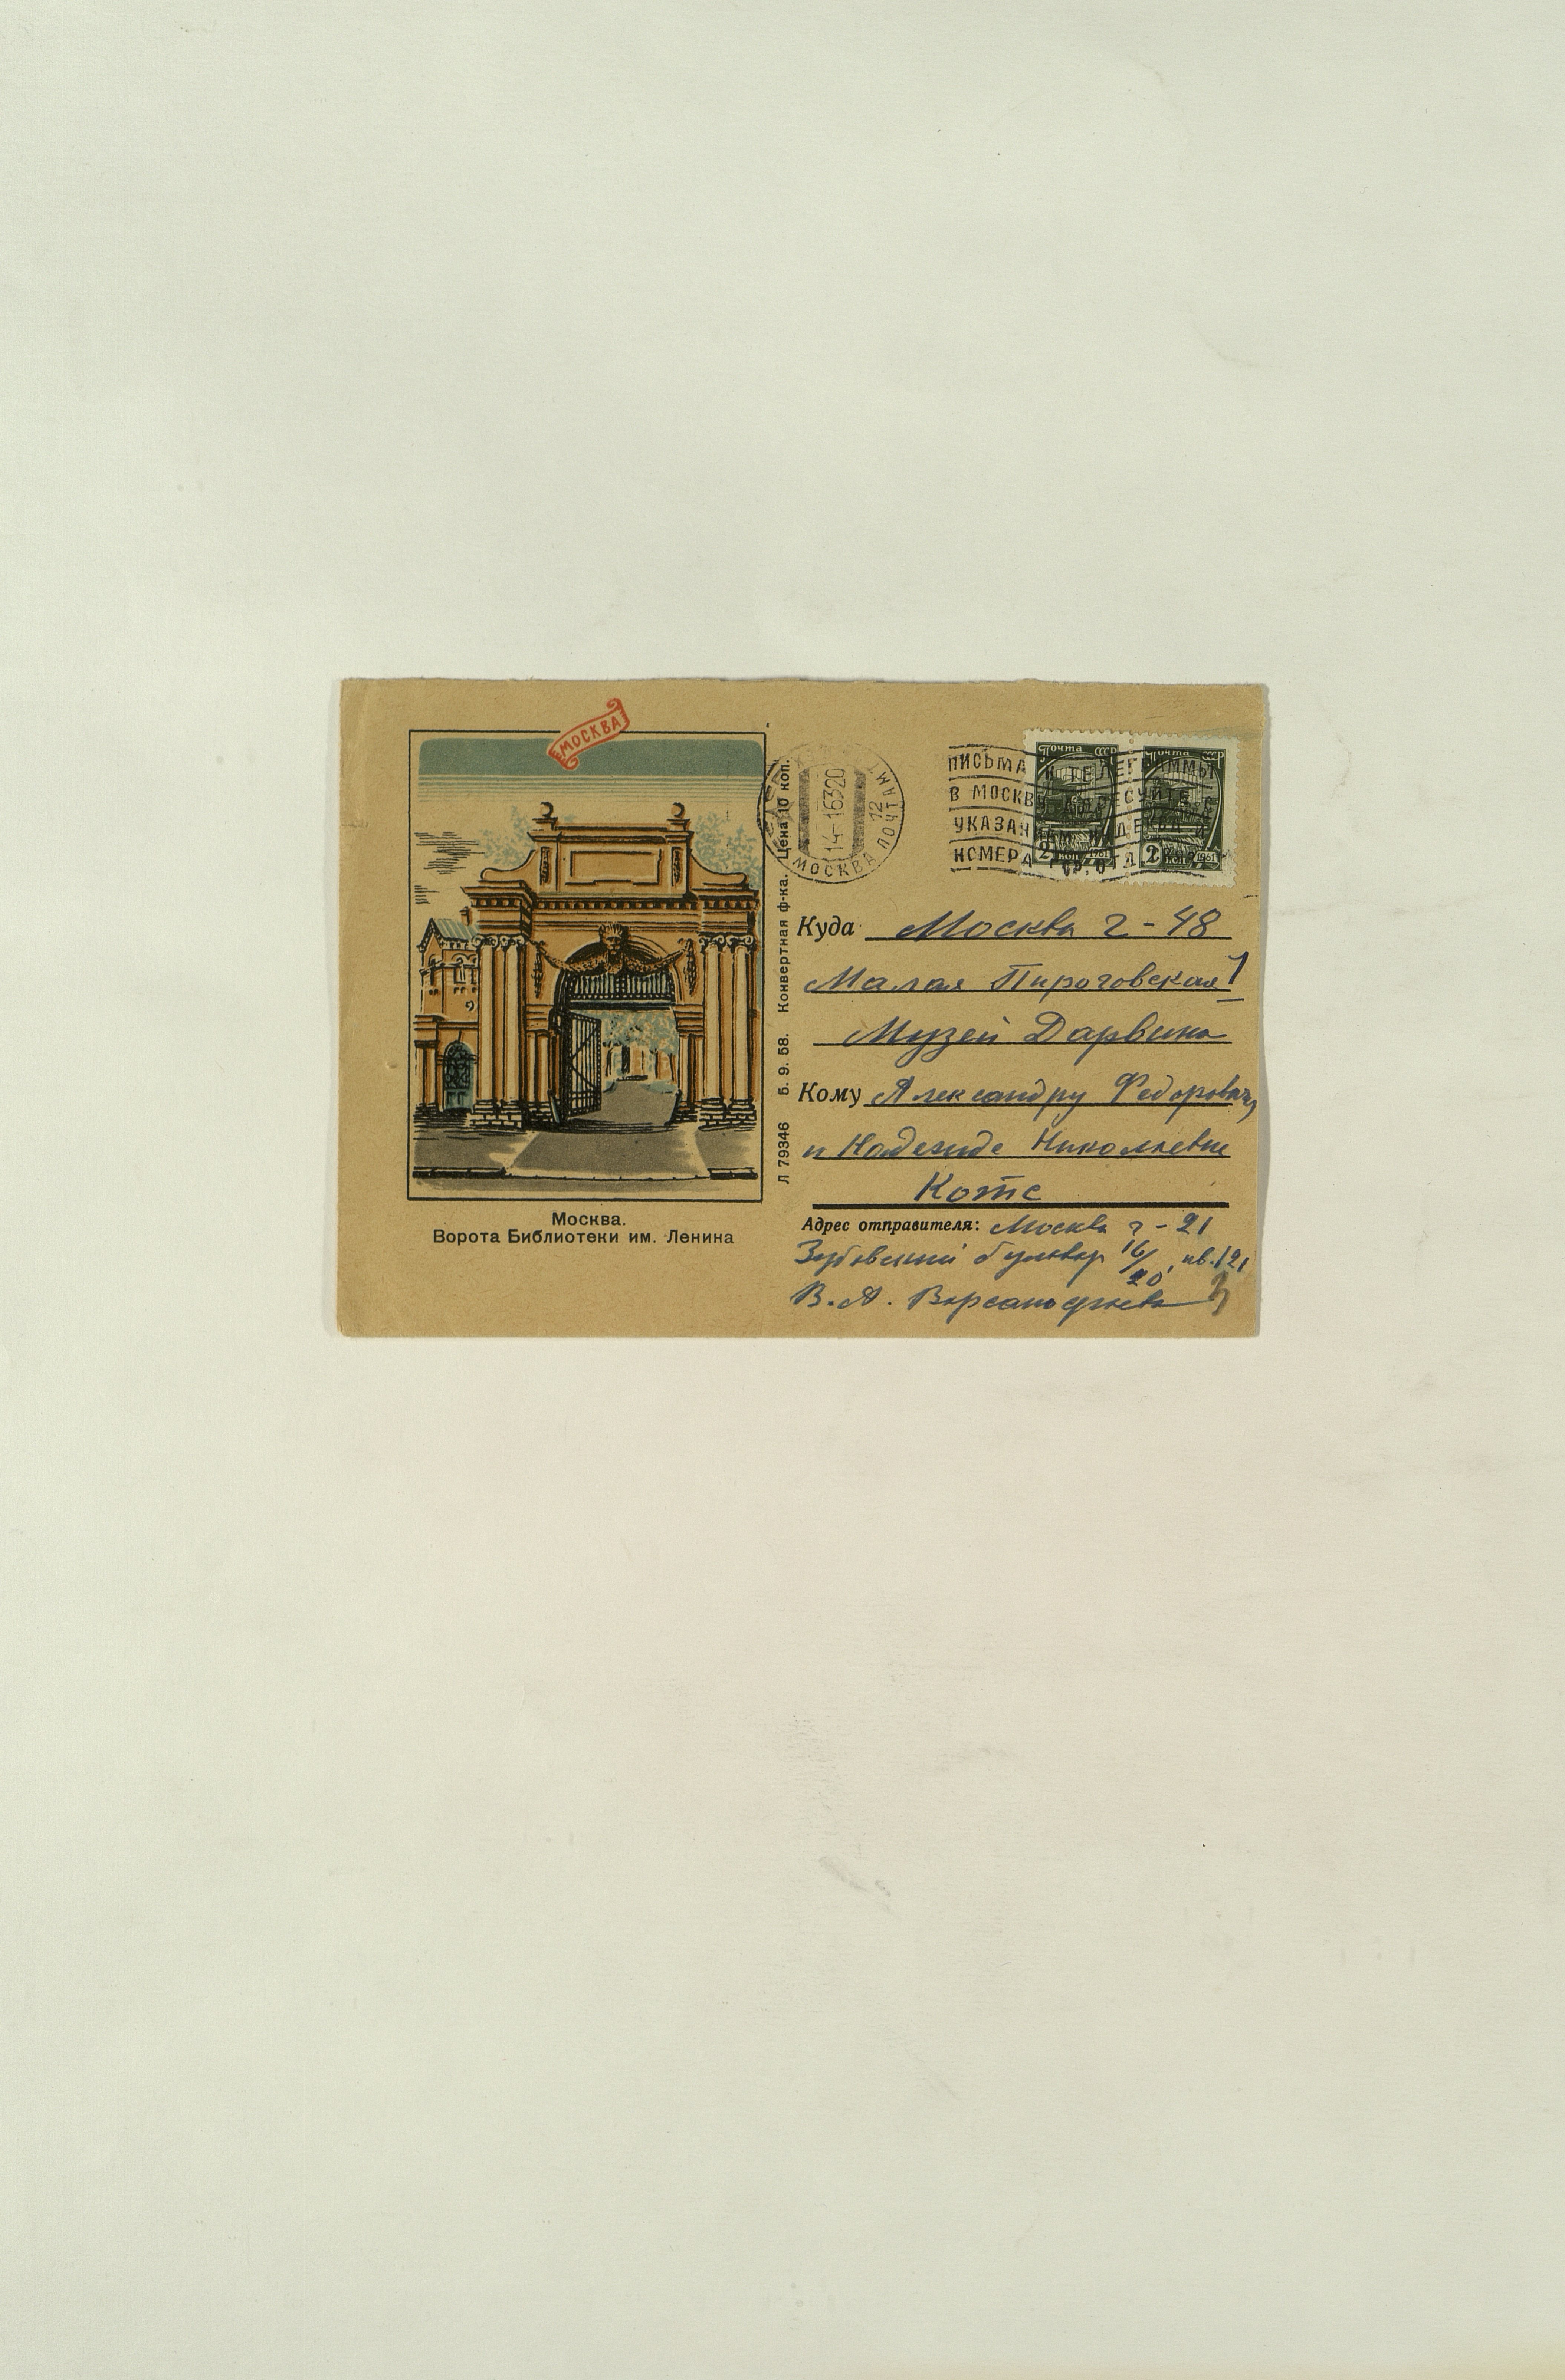 МОСКВА
Москва.
Ворота Библиотеки им. Ленина
Л 79346 5. 9. 58. Конвертная ф-ка. Цена 10 коп.
14-1-6320
12
МОСКВА ПОЧТАМТ
ПИСЬМА И ТЕЛЕГРАММЫ
В МОСКВУ АДРЕСУЙТЕ С
УКАЗАНИЕМ ИНДЕКСА И
НОМЕРА ГОР. ОТД.
Почта СССР
2 коп 1961
Почта СССР
2 коп 1961
Куда Москва Г-48
Малая Пироговская 1
Музей Дарвина
Кому Александру Федоровичу
и Надежде Николаевне
Котс
Адрес отправителя: Москва Г-21
Зубовский бульвар 16/20, кв. 121
В. А. Варсанофьева